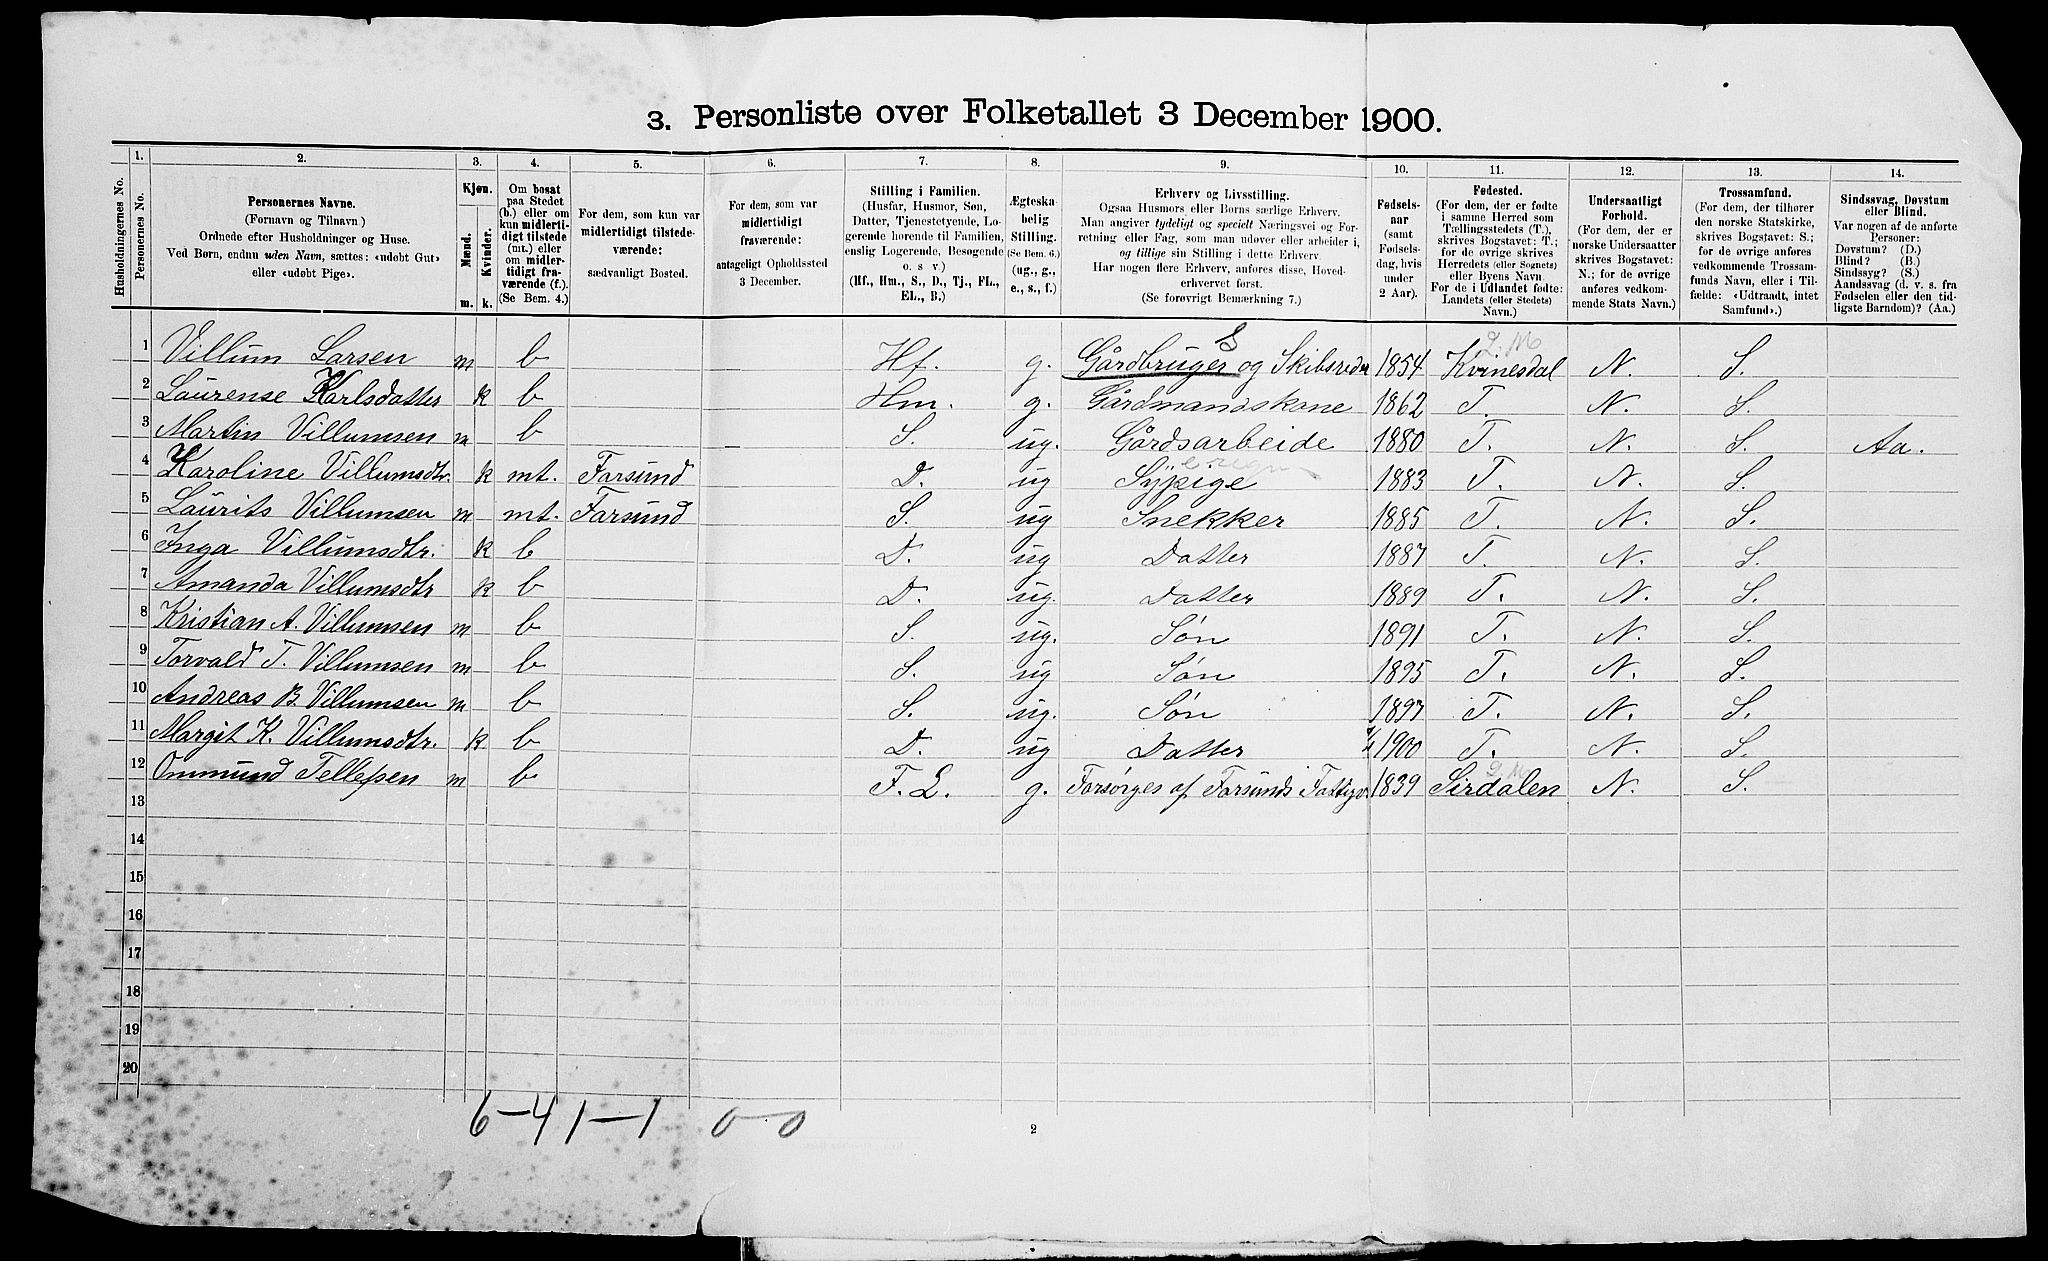 3. Personliste over Folketallet 3 December 1900.
1. 2. 3. 4. 5. 6. 7. 8. 9. 10. 11. 12. 13. 14.
Husholdningernes No.
Personernes No.
Personernes Navne.
(Fornavn og Tilnavn)
Ordnede efter Husholdninger og Huse.
Ved Børn, endnu uden Navn, sættes: «udøbt Gut»
eller «udøbt Pige».
Kjøn.
Mænd. Kvinder.
m. k.
Om bosat
paa Stedet
(b.) eller om
kun midlerti-
digt tilstede
(mt.) eller
om midler-
tidigt fra-
værende (f.).
(Se Bem. 4.)
For dem, som kun var
midlertidigt tilstede-
værende:
sædvanligt Bosted.
For dem, som var
midlertidigt
fraværende:
antageligt Opholdssted
3 December.
Stilling i Familien.
(Husfar, Husmor, Søn,
Datter, Tjenestetyende, Lo-
gerende hørende til Familien,
enslig Logerende, Besøgende
o. s. v.)
(Hf., Hm., S., D., Tj., FL.,
EL., B.)
Ægteska-
belig
Stilling.
(Se Bem. 6.)
(ug., g.,
e., s., f.)
Erhverv og Livsstilling.
Ogsaa Husmors eller Børns særlige Erhverv.
Man angiver tydeligt og specielt Næringsvei og For-
retning eller Fag, som man udøver eller arbeider i,
og tillige sin Stilling i dette Erhverv.
Har nogen flere Erhverv, anføres disse, Hoved-
erhvervet først.
(Se forøvrigt Bemærkning 7.)
Fødsels-
aar
(samt
Fødsels-
dag, hvis
under
2 Aar).
Fødested.
(For dem, der er fødte
i samme Herred som
Tællingsstedets (T.),
skrives Bogstavet: T.;
for de øvrige skrives
Herredets (eller Sognets)
eller Byens Navn.
For de i Udlandet fødte:
Landets (eller Stedets)
Navn.)
Undersaatligt
Forhold.
(For dem, der er
norske Undersaatter
skrives Bogstavet:
N.; for de øvrige
anføres vedkom-
mende Stats Navn.)
Trossamfund.
(For dem, der tilhører
den norske Statskirke,
skrives Bogstavet: S.;
for de øvrige anføres
vedkommende Trossam-
funds Navn, eller i Til-
fælde: «Udtraadt, intet
Samfund».)
Sindssvag, Døvstum
eller Blind.
Var nogen af de anførte
Personer:
Døvstum? (D.)
Blind? (B.)
Sindssyg? (S.)
Aandssvag (d. v. s. fra
Fødselen eller den tid-
ligste Barndom)? (Aa.)
1 Villum Larsen m b Hf. g. Gårdbruger og Skibsreder 1854 Kvinesdal N. S.
2 Laurense Karlsdatter k b Hm. g. Gårdmandskone 1862 T. N. S.
3 Martin Villumsen m b S. ug. Gårdsarbeide 1880 T. N. S. Aa.
4 Karoline Villumsdtr. k mt. Farsund D. ug Sypige 1883 T. N. S.
5 Laurits Villumsen m mt. Farsund S. ug Snekker 1885 T. N. S.
6 Inga Villumsdtr. k b D. ug Datter 1887 T. N. S.
7 Amanda Villumsdtr k b D. ug. Datter 1889 T. N. S.
8 Kristian A. Villumsen m b S. ug. Søn 1891 T. N. S.
9 Torvald T. Villumsen m b S. ug Søn 1895 T. N. S.
10 Andreas B. Villumsen m b S. ug. Søn 1897 T. N. S.
11 Margit K. Villumsdtr. k b D. ug Datter 1900 T. N. S.
12 Ommund Tellefsen m b F. L. g. Forsørges af Farsunds Fattigv. 1839 Sirdalen N. S.
13
14
15
16
17
18
19
20
6-4 1-1 0-0
2